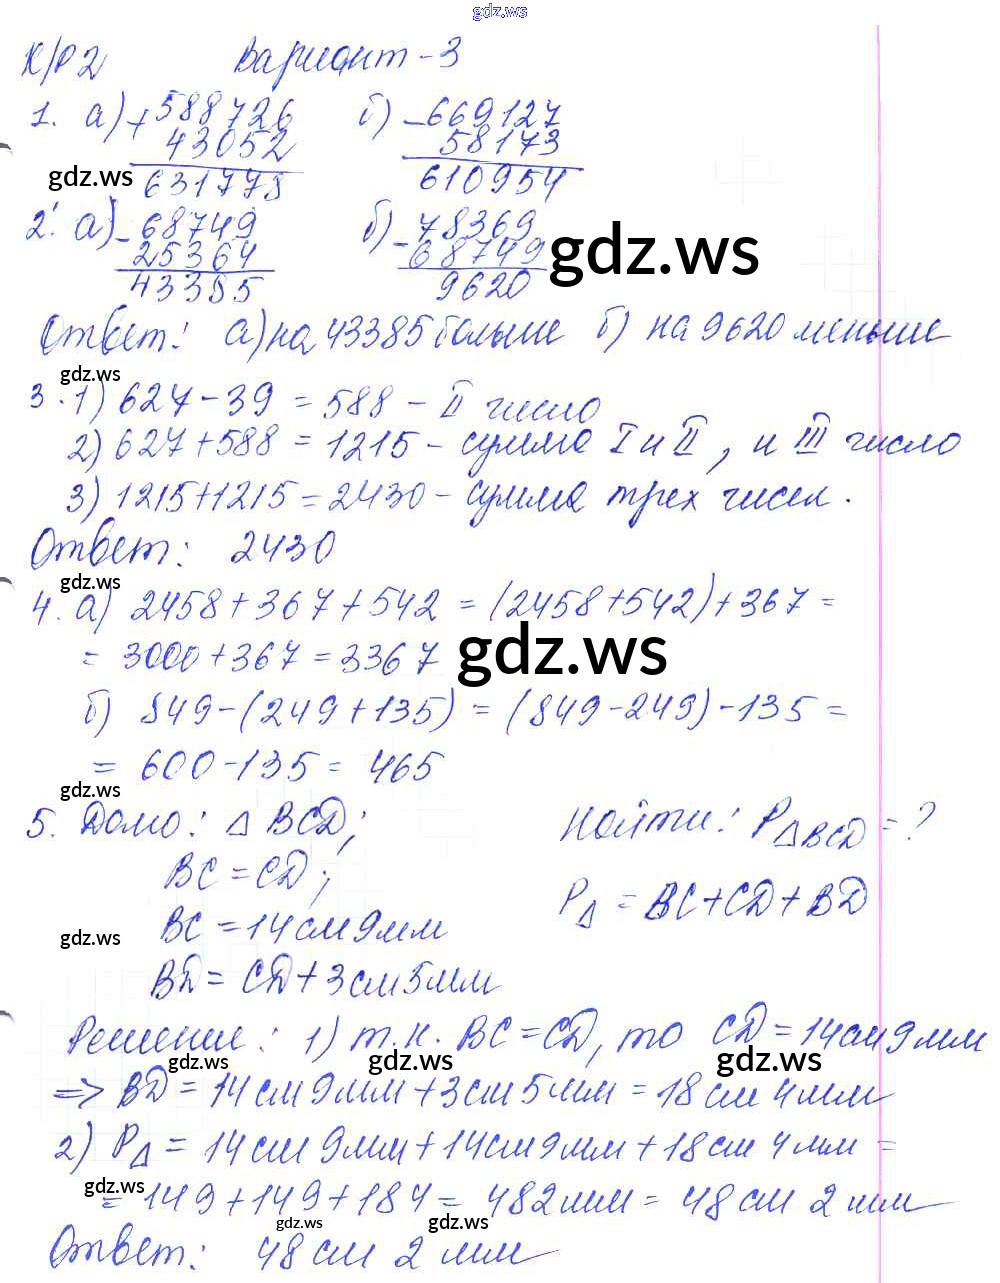 gdz.ws
К/Р2 Вариант-3
1. а) + 588726 б) - 669127
43052 58173
gdz.ws 631778 610954
2. а) - 68749 б) - 78369
25364 68749 gdz.ws
43385 9620
Ответ: а) на 43385 больше б) на 9620 меньше
gdz.ws
3. 1) 627 - 39 = 588 - II число
2) 627 + 588 = 1215 - сумма I и II, и III число
3) 1215 + 1215 = 2430 - сумма трех чисел.
Ответ: 2430
gdz.ws
4. а) 2458 + 367 + 542 = (2458 + 542) + 367 =
= 3000 + 367 = 3367 gdz.ws
б) 849 - (249 + 135) = (849 - 249) - 135 =
= 600 - 135 = 465
gdz.ws
5. Дано: △ BCD; Найти: P△BCD = ?
BC = CD; P△ = BC + CD + BD
BC = 14 см 9 мм
gdz.ws
BD = CD + 3 см 5 мм
Решение: 1) т.к. BC = CD, то CD = 14 см 9 мм
gdz.ws gdz.ws gdz.ws
=> BD = 14 см 9 мм + 3 см 5 мм = 18 см 4 мм
2) P△ = 14 см 9 мм + 14 см 9 мм + 18 см 4 мм =
gdz.ws
= 149 + 149 + 184 = 482 мм = 48 см 2 мм
gdz.ws gdz.ws
Ответ: 48 см 2 мм